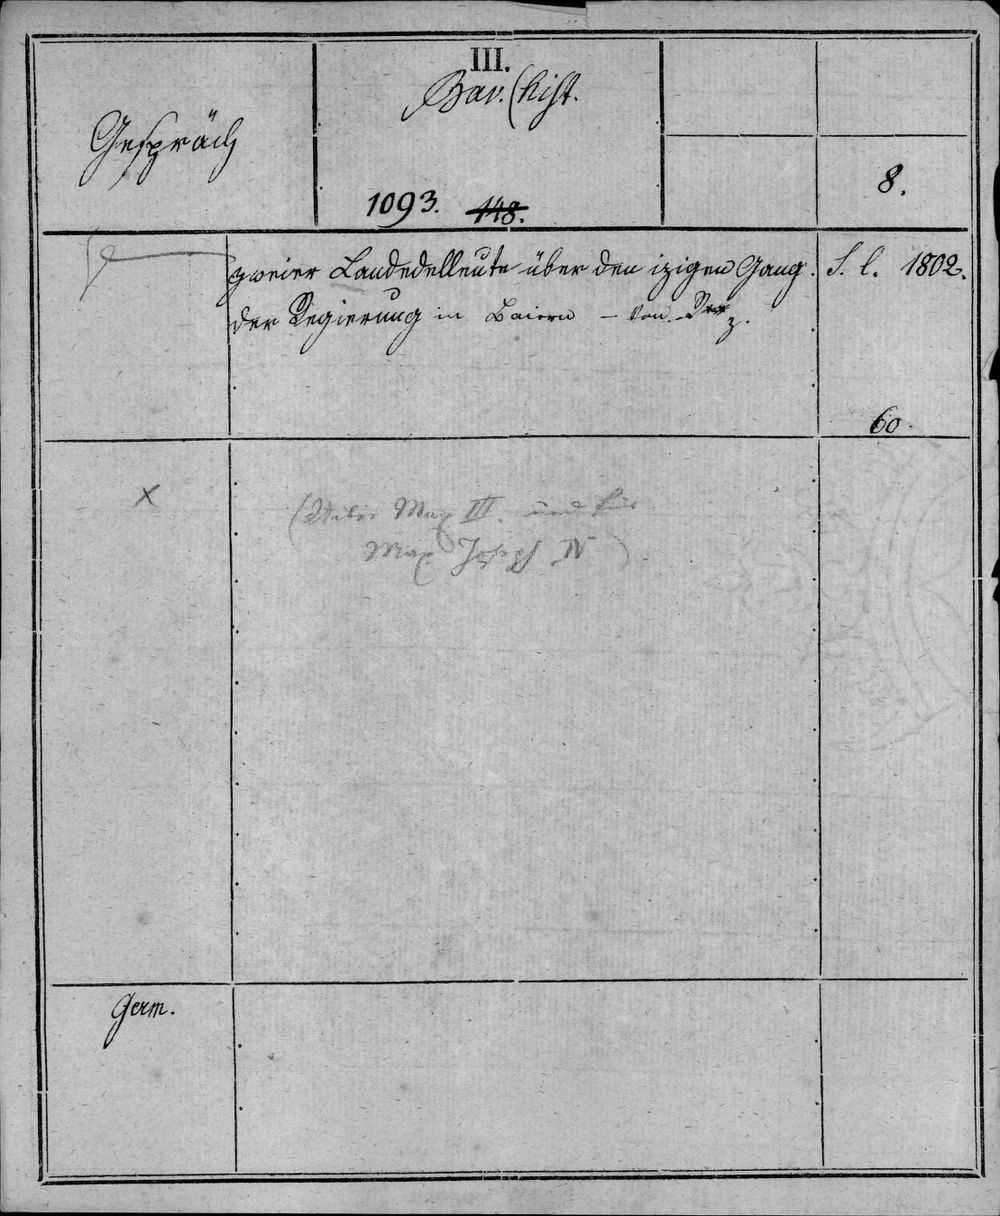 III.
Bav. (hist.
Gespräch
8.
1093. 148.
zweier Landedelleute über den izigen Gang
der Regierung in Baiern - Von
S. l. 1802.
60.
x
(Ueber Max III. und
Max Joseph IV)
Germ.